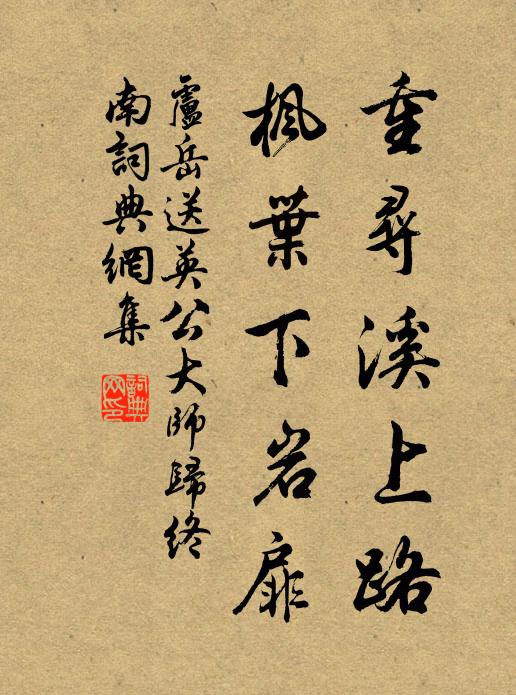 重尋溪上路
楓葉下岩扉
廬岳送英公大師歸終
南詞典網集
詞典
网印